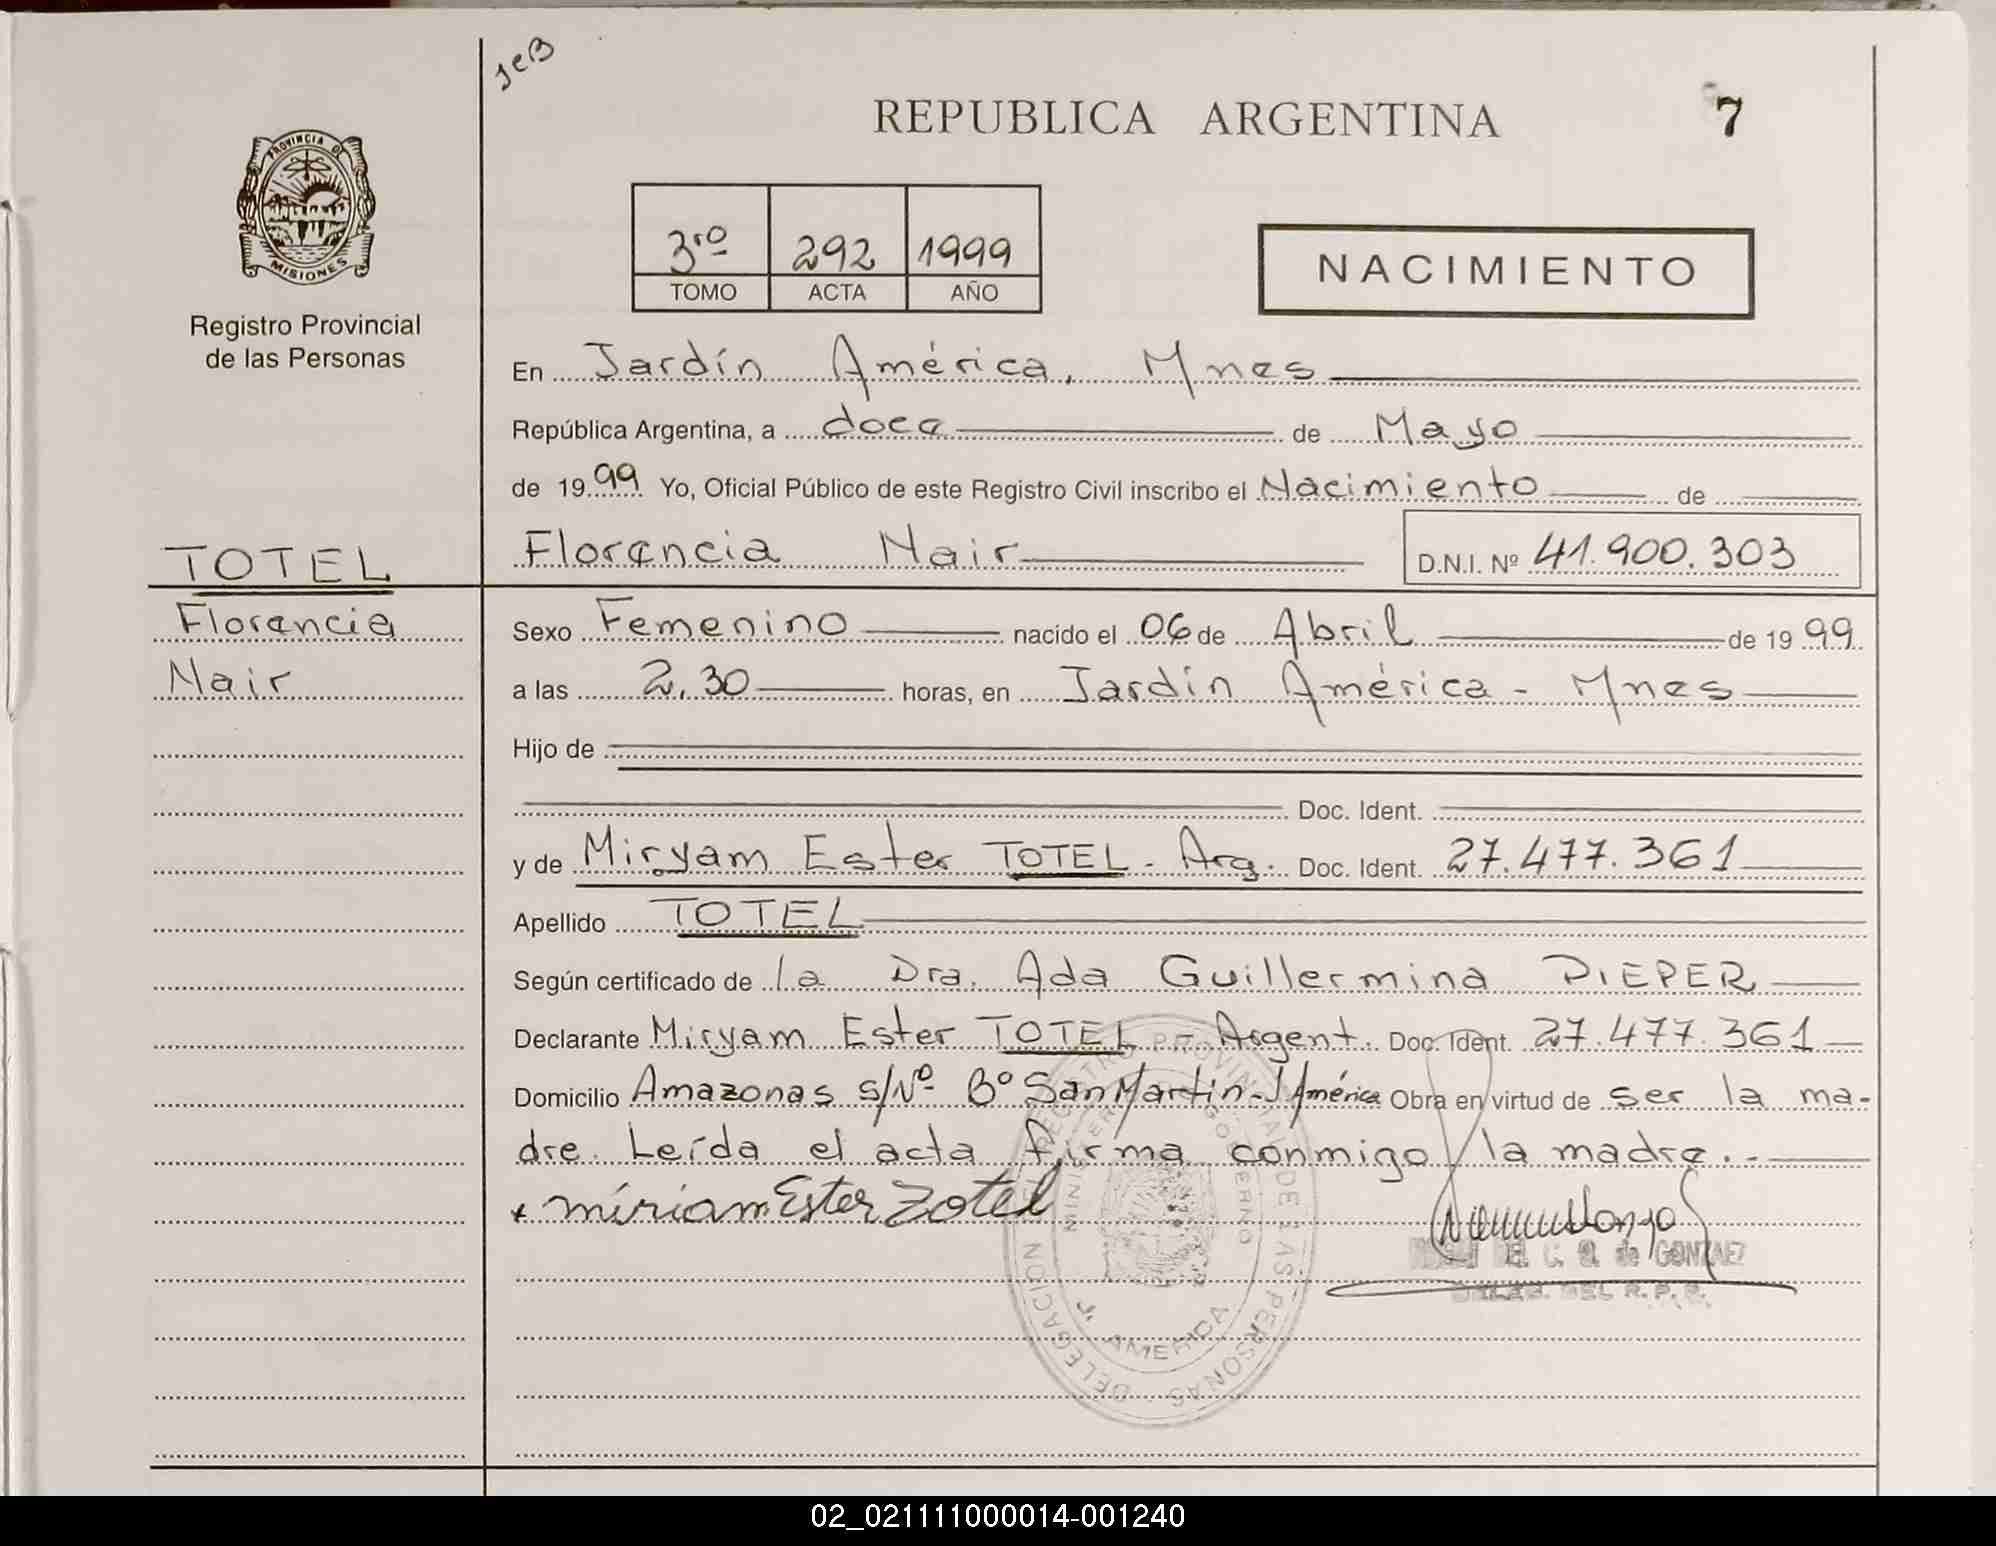 JCB
REPUBLICA ARGENTINA
7
PROVINCIA DE
MISIONES
Registro Provincial
de las Personas
3ro 292 1999
TOMO ACTA AÑO
NACIMIENTO
En Jardín América, Mnes
República Argentina, a doce de Mayo
de 1999 Yo, Oficial Público de este Registro Civil inscribo el Nacimiento de
Florencia Nair D.N.I. Nº 41.900.303
TOTEL
Florencia
Nair
Sexo Femenino nacido el 06 de Abril de 1999
a las 2.30 horas, en Jardín América - Mnes
Hijo de
Doc. Ident.
y de Miryam Ester TOTEL - Arg. Doc. Ident. 27.477.361
Apellido TOTEL
Según certificado de la Dra. Ada Guillermina PIEPER
Declarante Miryam Ester TOTEL - Argent. Doc. Ident. 27.477.361
Domicilio Amazonas s/Nº Bº San Martín - J. América Obra en virtud de ser la ma-
dre. Leída el acta firma conmigo la madre.-
miriam Ester Zotel
DEL C. G. de GONZAEZ
DELEG. DEL R.P.P.
DELEGACION REGISTRO PROVINCIAL DE LAS PERSONAS
MINISTERIO GOBIERNO
J. AMERICA
02_021111000014-001240